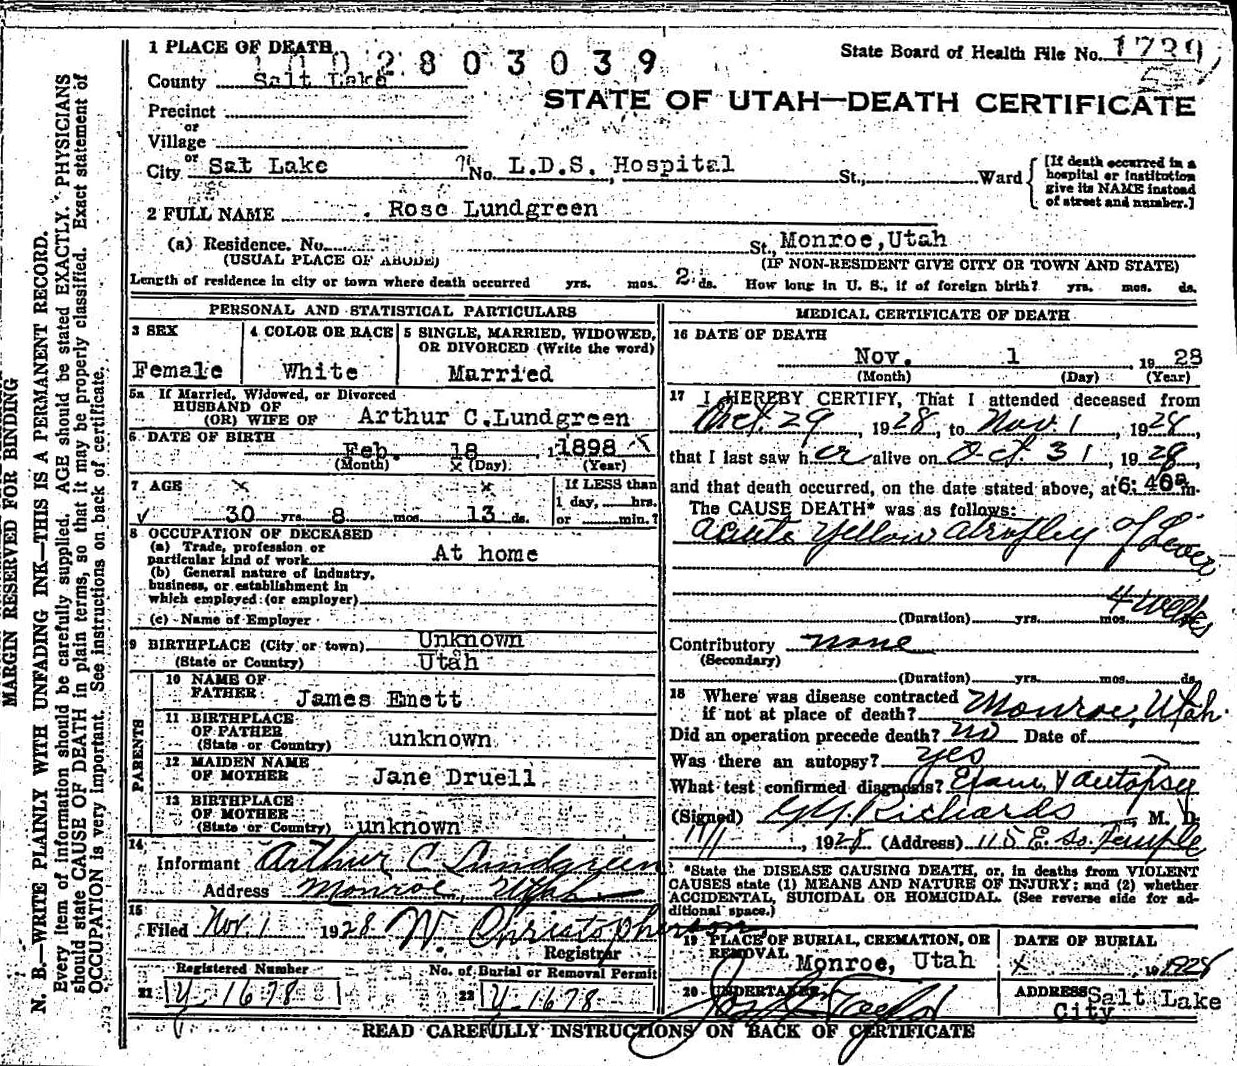 1 PLACE OF DEATH
State Board of Health File No. 1739
2803039
County Salt Lake
STATE OF UTAH—DEATH CERTIFICATE
Precinct
or
Village
or
City Sat Lake No. L.D.S. Hospital St., Ward
[If death occurred in a hospital or institution give its NAME instead of street and number.]
2 FULL NAME Rose Lundgreen
(a) Residence. No. St., Monroe, Utah
(USUAL PLACE OF ABODE) (IF NON-RESIDENT GIVE CITY OR TOWN AND STATE)
Length of residence in city or town where death occurred yrs. mos. 2 ds. How long in U. S., if of foreign birth? yrs. mos. ds.
PERSONAL AND STATISTICAL PARTICULARS
3 SEX
Female
4 COLOR OR RACE
White
5 SINGLE, MARRIED, WIDOWED, OR DIVORCED (Write the word)
Married
5a If Married, Widowed, or Divorced
HUSBAND OF
(OR) WIFE OF Arthur C.Lundgreen
6 DATE OF BIRTH
Feb. 18 1898
(Month) (Day) (Year)
7 AGE
30 yrs. 8 mos. 13 ds.
If LESS than
1 day, hrs.
or min.?
8 OCCUPATION OF DECEASED
(a) Trade, profession or
particular kind of work At home
(b) General nature of industry,
business, or establishment in
which employed (or employer)
(c) Name of Employer
9 BIRTHPLACE (City or town) Unknown
(State or Country) Utah
PARENTS
10 NAME OF
FATHER James Emett
11 BIRTHPLACE
OF FATHER
(State or Country) unknown
12 MAIDEN NAME
OF MOTHER Jane Druell
13 BIRTHPLACE
OF MOTHER
(State or Country) unknown
14
Informant Arthur C Lundgreen
Address Monroe, Utah
15
Filed Nov. 1 1928 W. Christopherson
Registrar
Registered Number
21 Y-1678
No. of Burial or Removal Permit
22 Y-1678
MEDICAL CERTIFICATE OF DEATH
16 DATE OF DEATH
Nov. 1 1928
(Month) (Day) (Year)
17 I HEREBY CERTIFY, That I attended deceased from
Oct. 29, 1928, to Nov. 1, 1928
that I last saw her alive on Oct. 31, 1928,
and that death occurred, on the date stated above, at 6:40 m.
The CAUSE DEATH* was as follows:
Acute Yellow Atrophy of Liver
4 weeks
(Duration) yrs. mos.
Contributory none
(Secondary)
(Duration) yrs. mos. ds.
18 Where was disease contracted
if not at place of death? Monroe, Utah.
Did an operation precede death? no Date of
Was there an autopsy? yes
What test confirmed diagnosis? Exam & autopsy
(Signed) G.G. Richards, M. D.
11/1, 1928 (Address) 115 E. So. Temple
*State the DISEASE CAUSING DEATH, or, in deaths from VIOLENT
CAUSES state (1) MEANS AND NATURE OF INJURY; and (2) whether
ACCIDENTAL, SUICIDAL OR HOMICIDAL. (See reverse side for ad-
ditional space.)
19 PLACE OF BURIAL, CREMATION, OR
REMOVAL
Monroe, Utah
DATE OF BURIAL
1928
20 UNDERTAKER
ADDRESS Salt Lake
City
READ CAREFULLY INSTRUCTIONS ON BACK OF CERTIFICATE
MARGIN RESERVED FOR BINDING
N. B.—WRITE PLAINLY WITH UNFADING INK—THIS IS A PERMANENT RECORD.
Every item of information should be carefully supplied. AGE should be stated EXACTLY. PHYSICIANS
should state CAUSE OF DEATH in plain terms, so that it may be properly classified. Exact statement of
OCCUPATION is very important. See instructions on back of certificate.